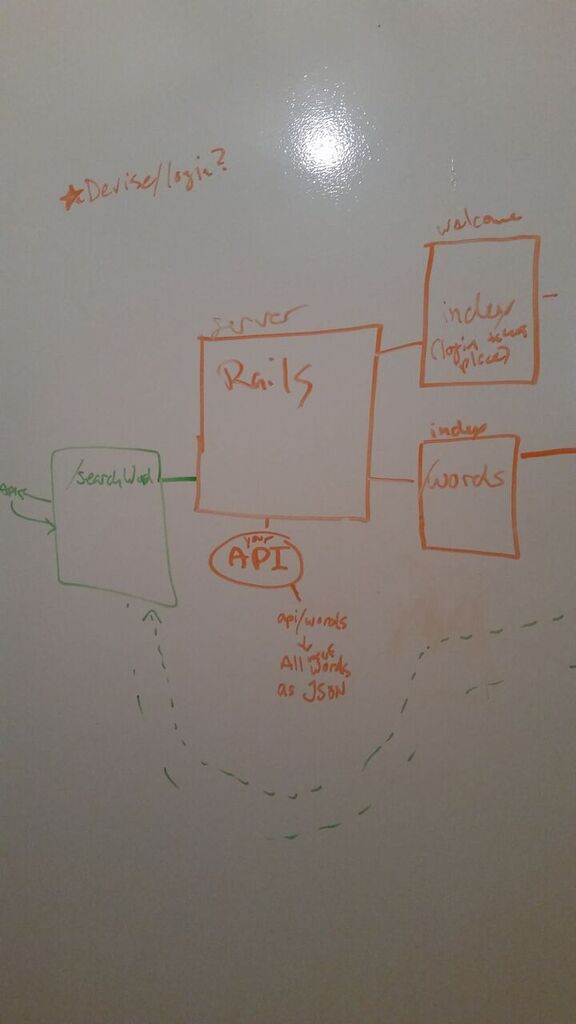 ★Devise/login?
welcome
index
(login
place?)
server
Rails
index
/words
/searchWord
your
API
api/words
↓
All
words
as JSON